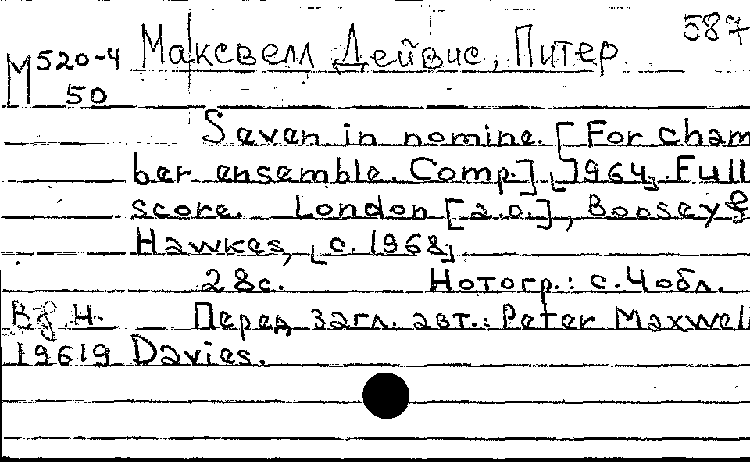 587
М520-4 Максвелл Дейвис, Питер
50
Seven in nomine. [For cham
ber ensemble. Comp.] [1964]. Full
score. London [a.o.], Boosey &
Hawkes, [c. 1968].
28с. Нотогр.: с. 4 обл.
Вф Н. Перед загл. авт.: Peter Maxwell
19619 Davies.